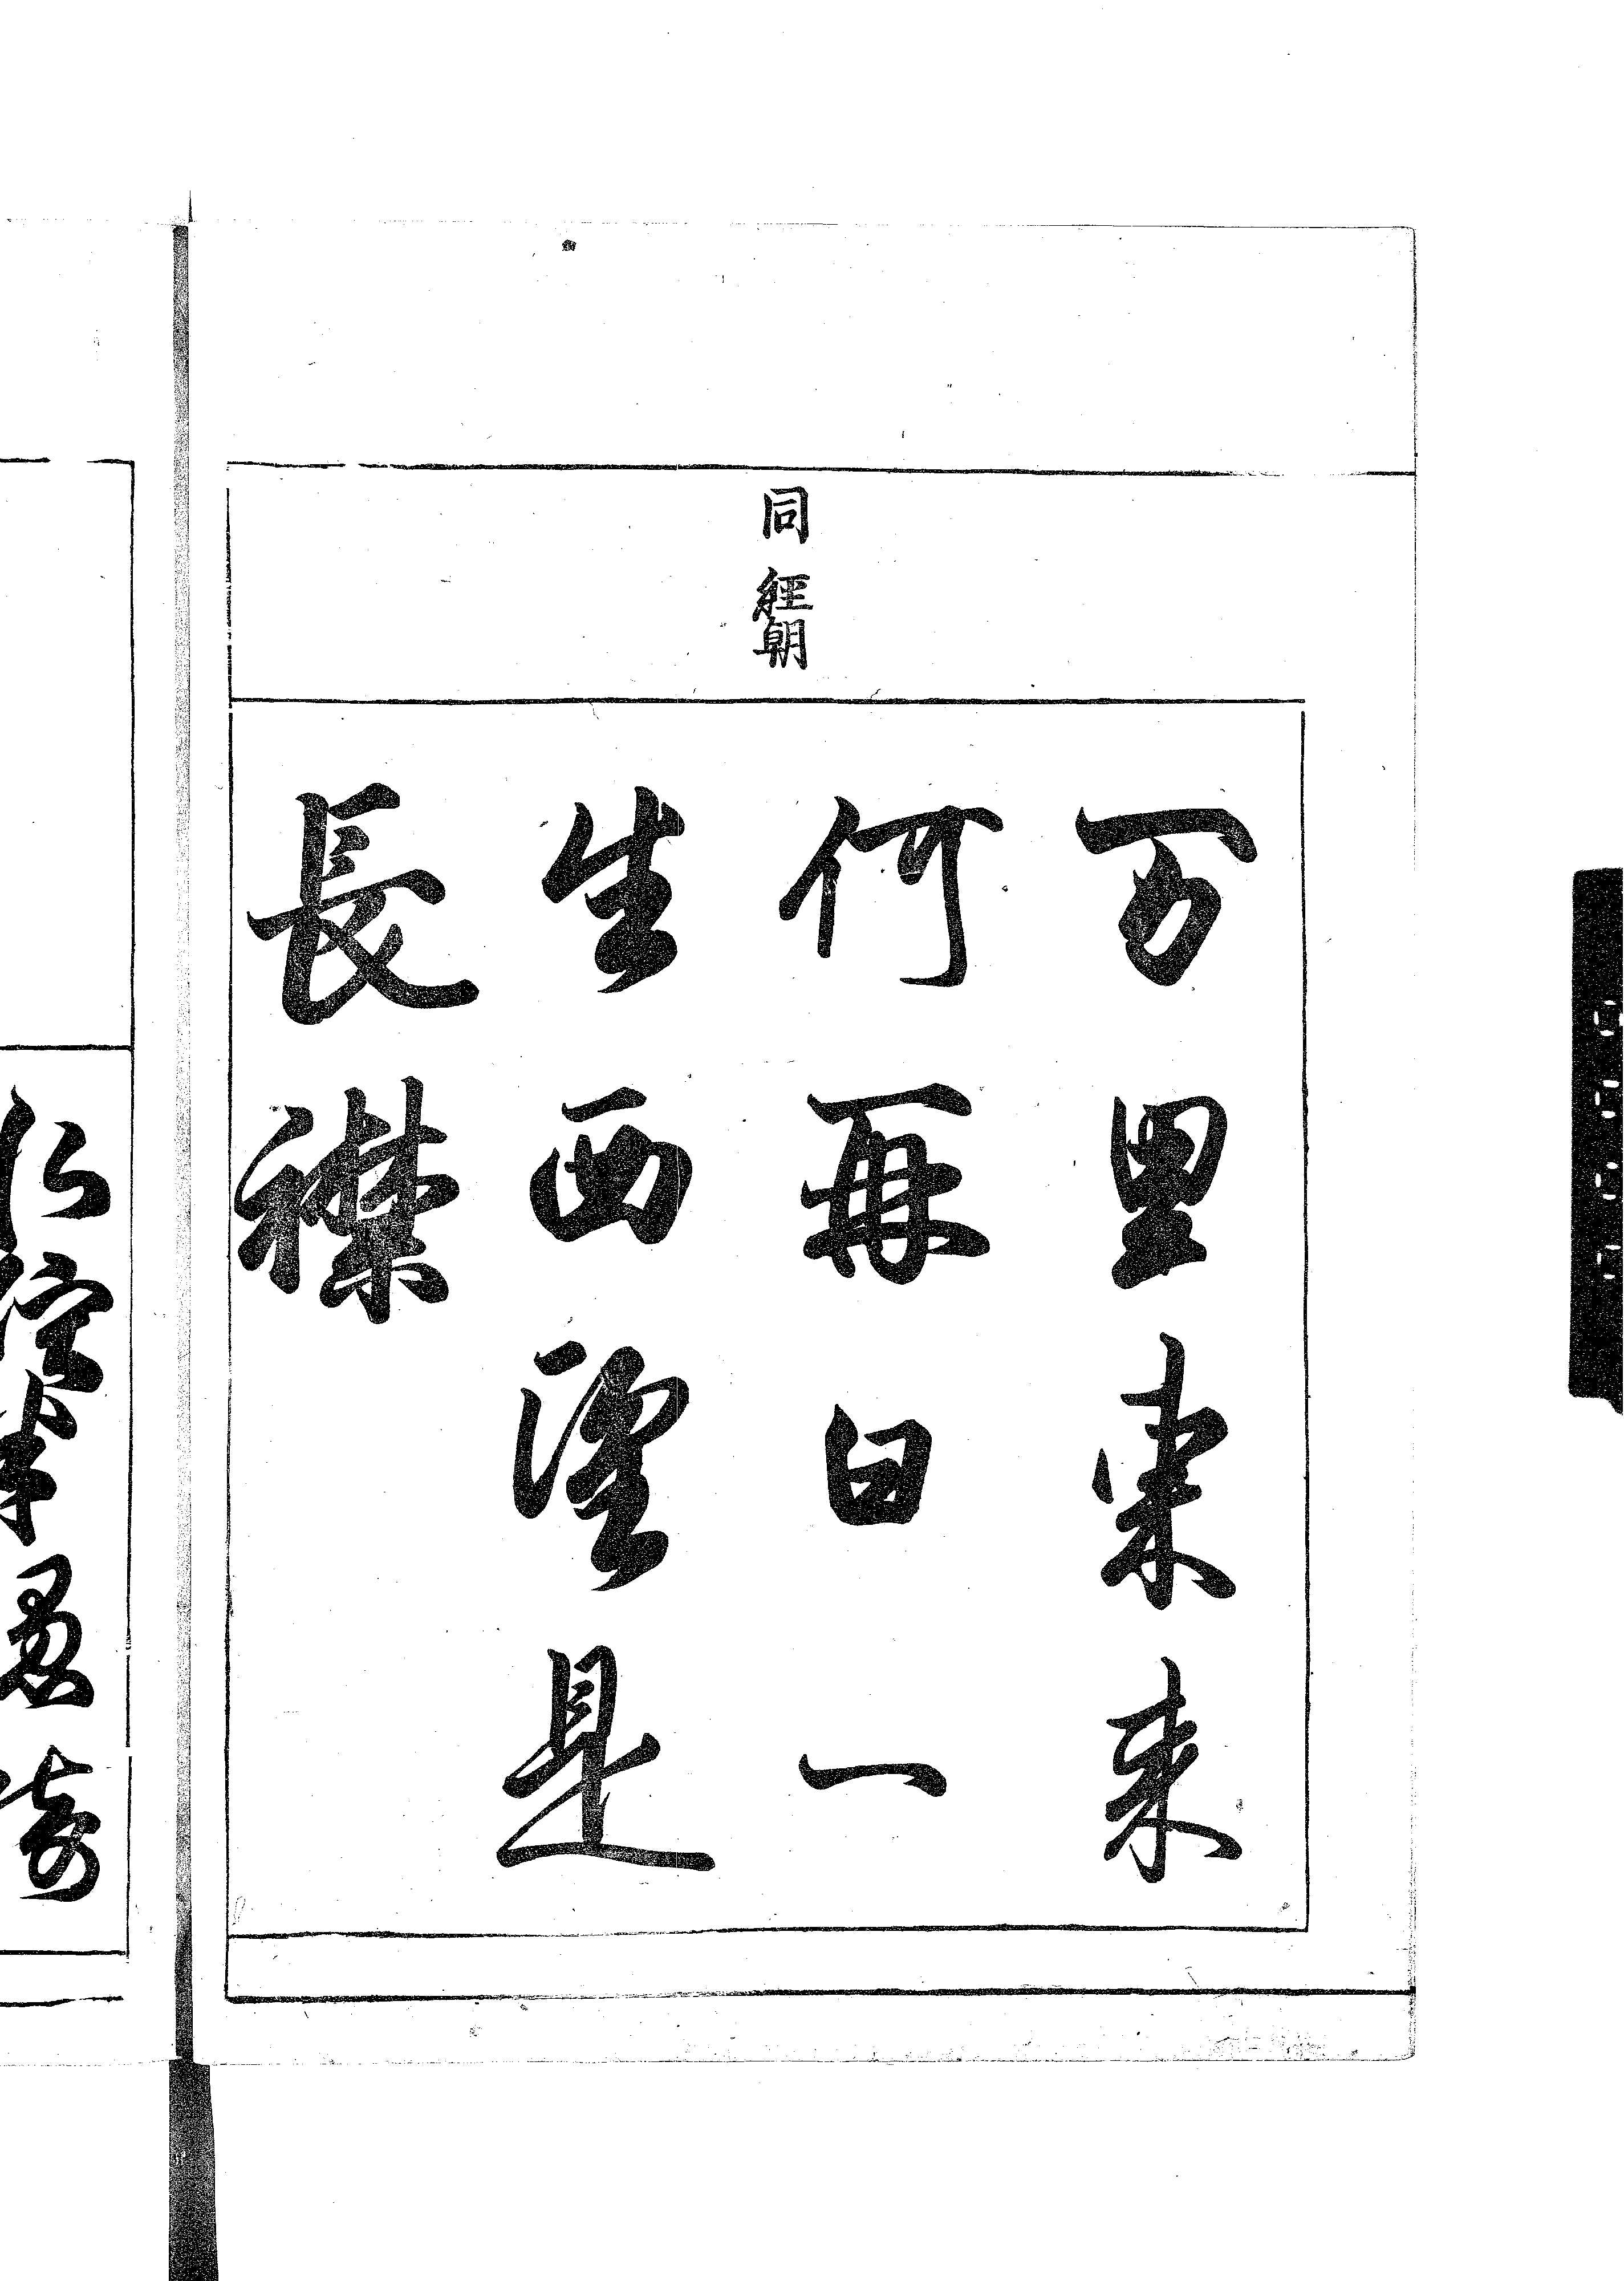 同 經朝
万里東来
何再日一
生西望是
長襟